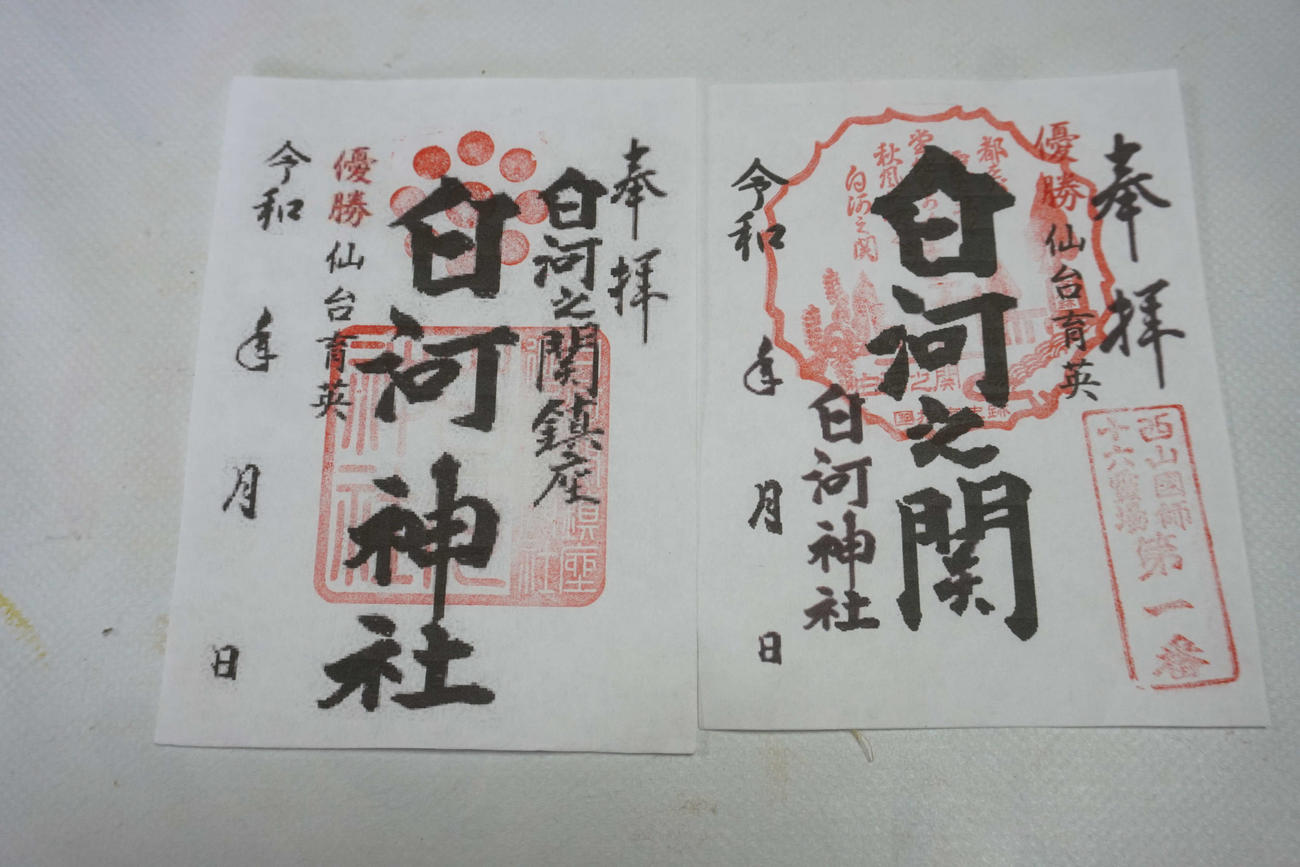 奉拝
白河之関鎮座
白河神社
優勝 仙台育英
令和 年 月 日
奉拝
優勝 仙台育英
白河之関
白河神社
令和 年 月 日
秋風
白河之関
西山国師
十六霊場
第一番